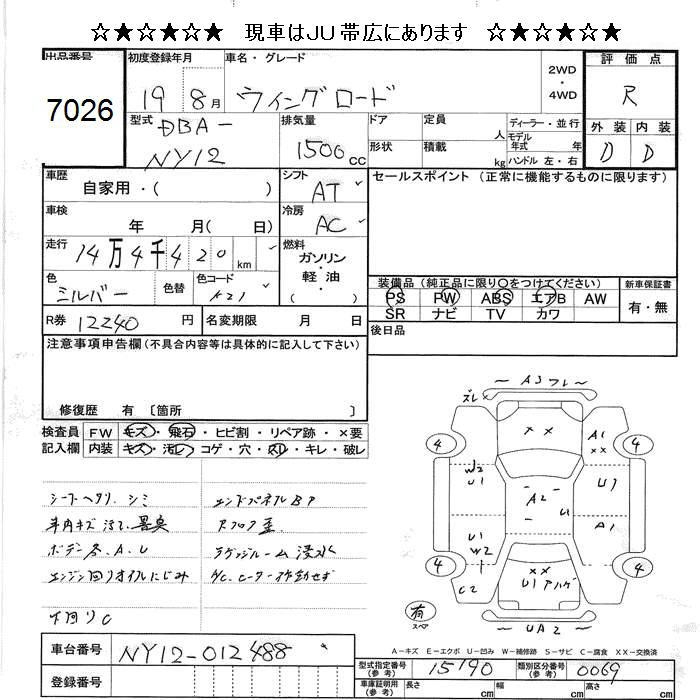 ☆★☆★☆★ 現車はJU帯広にあります ☆★☆★☆★
出品番号 初度登録年月 車名・グレード 2WD・4WD 評価点
7026 19 8月 ウィングロード R
型式 DBA-NY12 排気量 1500cc ドア 定員 人 ディーラー・並行
形状 積載 kg モデル年式 年式 ハンドル 左・右
外装 内装
D D
車歴 自家用・( ) シフト AT セールスポイント (正常に機能するものに限ります)
車検 年 月( 日) 冷房 AC
走行 14万4千420km 燃料 ガソリン・軽油・( )
色 シルバー 色替 色コード K21
装備品 (純正品に限り○をつけてください) 新車保証書
PS PW ABS エアB AW 有・無
SR ナビ TV カワ
R券 12240円 名変期限 月 日 後日品
注意事項申告欄(不具合内容等は具体的に記入して下さい)
修復歴 有 〔箇所 〕
検査員記入欄 FW キズ・飛石・ヒビ割・リペア跡・×要
内装 キズ・汚レ・コゲ・穴・凹・キレ・破レ
シートヘタリ、シミ
車内キズ 汚れ、異臭
ボデー各、A、U
エンジン回りオイルにじみ
下回りC
エンドパネルBP
Rフロア歪
ラゲッジルーム浸水
A/C、ヒーター作動せず
〜 A3 フレ 〜
ズレ
×× A1 ××
4 4
W2 U1 A2 U1
U U1 W2 A1
×× U1 アハゲ C2
4 4
有 スペア
〜 UA2 〜
A-キズ E-エクボ U-凹み W-補修跡 S-サビ C-腐食 XX-交換済
車台番号 NY12-012488
登録番号
型式指定番号(参考) 15190 類別区分番号(参考) 0069
車庫証明用(参考) 長さ cm 幅 cm 高さ cm